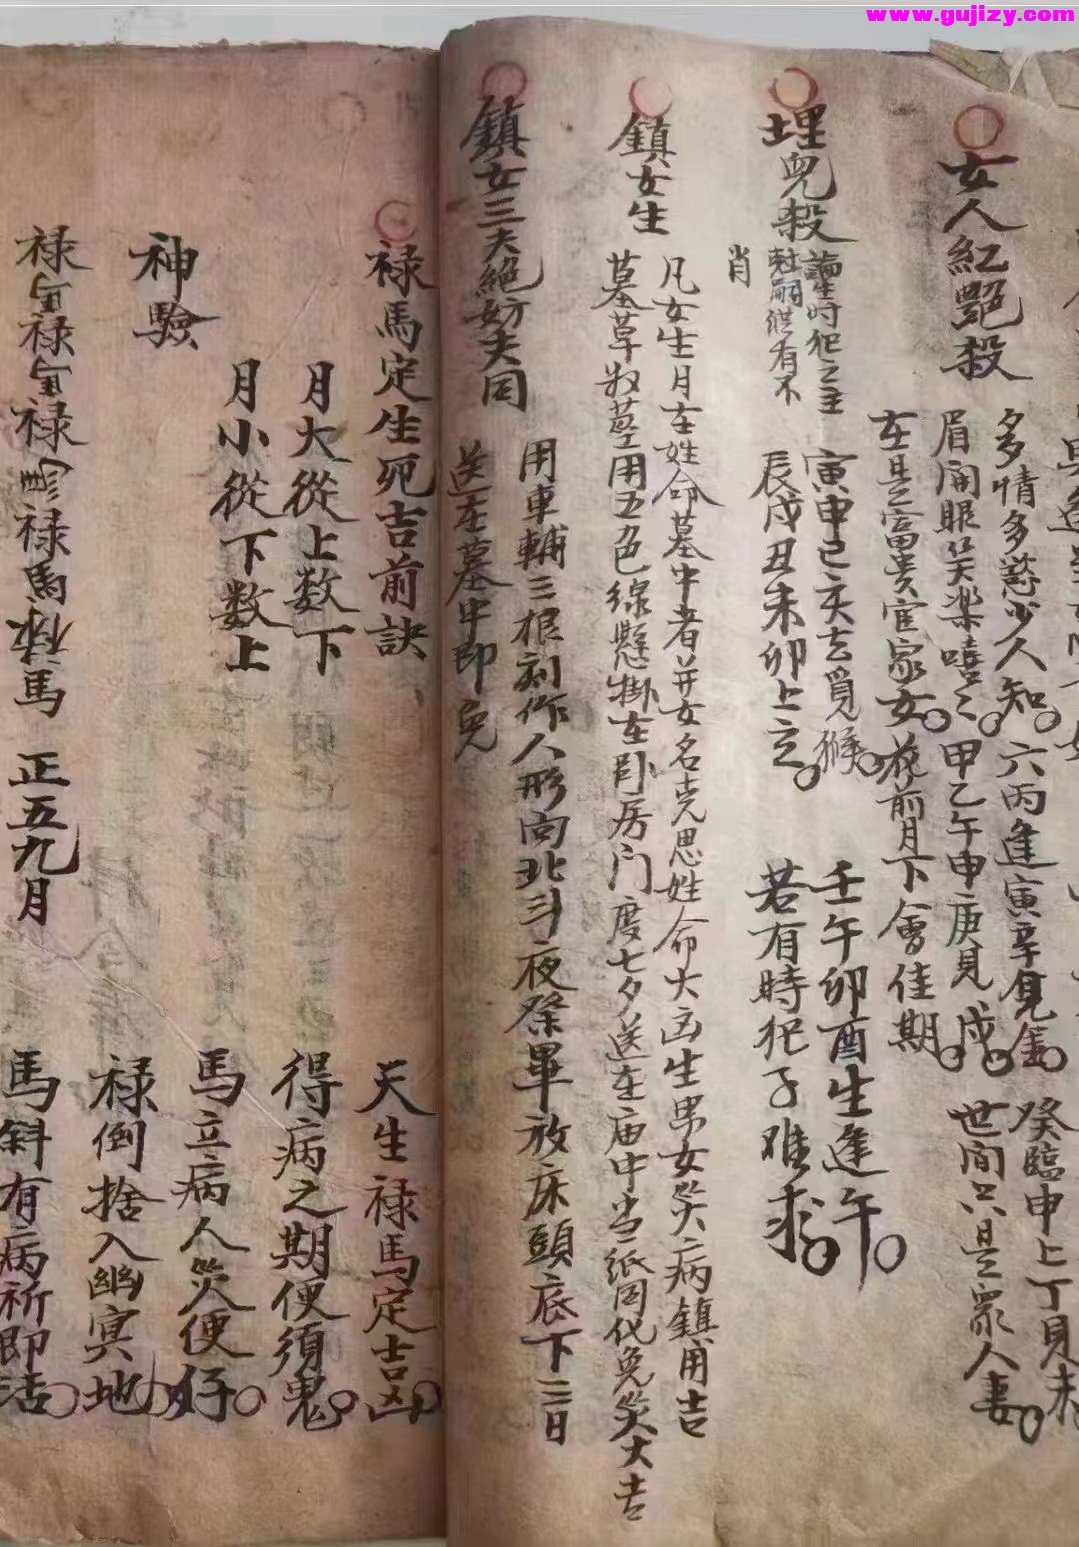 www.gujizy.com
女人紅艷殺
多情多慾少人知。六丙逢寅辛見雞。癸臨申上丁見未
眉開眼笑樂嘻之。甲乙午申庚見戌。世間只是眾人妻。
生是富贵官家女。花前月下會佳期。
埋兒殺
時犯之主
嗣縱有不
肖
寅申巳亥去覓猴。壬午卯酉生逢午。
辰戌丑未卯上立。若有時犯子难求。
鎮女生
凡女生月在姓命墓中者并女名克思姓命大凶生男女災病鎮用吉
墓草収墓用五色線懸掛在卧房门度七夕送在庙中当紙同化免災大吉
鎮女三夫絕妨夫同
用車輔三根刻作人形向北斗夜祭畢放床頭底下三日
送在墓中即免
禄馬定生死吉前訣
天生禄馬定吉凶。
月大從上数下
得病之期便須鬼。
月小從下数上
馬立病人災便仔。
神驗
禄倒捨入幽冥地
禄 禄 禄 禄馬 馬 正五九月
馬斜有病祈即活。